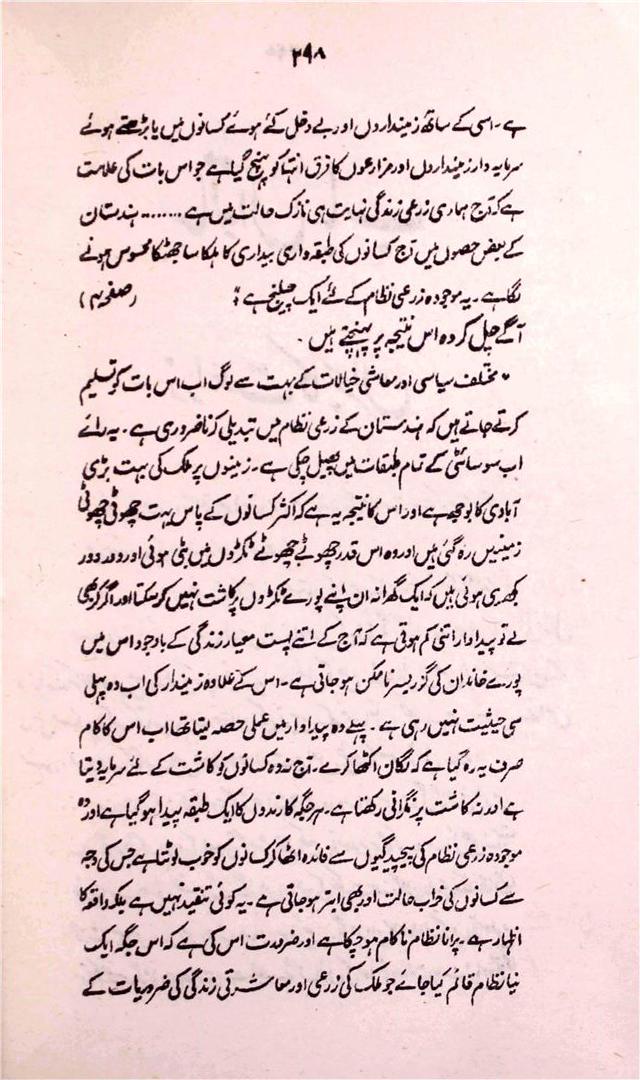 ۲۹۸
ہے۔ اسی کے ساتھ زمینداروں اور بے دخل کئے ہوئے کسانوں میں یا بڑھتے ہوئے
سرمایہ دار زمینداروں اور مزارعوں کا فرق انتہا کو پہنچ گیا ہے جو اس بات کی علامت
ہے کہ آج ہماری زرعی زندگی نہایت ہی نازک حالت میں ہے ........ ہندستان
کے بعض حصوں میں آج کسانوں کی طبقہ واری بیداری کا ہلکا سا جھٹکا محسوس ہونے
لگا ہے۔ یہ موجودہ زرعی نظام کے لئے ایک چیلنج ہے" (صفحہ ۴)
آگے چل کر وہ اس نتیجہ پر پہنچتے ہیں۔
"مختلف سیاسی اور معاشی خیالات کے بہت سے لوگ اب اس بات کو تسلیم
کرتے جاتے ہیں کہ ہندستان کے زرعی نظام میں تبدیلی کرنا ضروری ہے۔ یہ رائے
اب سوسائٹی کے تمام طبقات میں پھیل چکی ہے۔ زمینوں پر ملک کی بہت بڑی
آبادی کا بوجھ ہے اور اس کا نتیجہ یہ ہے کہ اکثر کسانوں کے پاس بہت چھوٹی چھوٹی
زمینیں رہ گئی ہیں اور وہ اس قدر چھوٹے چھوٹے ٹکڑوں میں بٹی ہوئی اور دور دور
بکھری ہوئی ہیں کہ ایک گھرانہ ان اپنے پورے ٹکڑوں پر کاشت نہیں کر سکتا اور اگر کر بھی
لے تو پیداوار اتنی کم ہوتی ہے کہ آج کے اتنے پست معیار زندگی کے باوجود اس میں
پورے خاندان کی گزر بسر ناممکن ہو جاتی ہے۔ اس کے علاوہ زمیندار کی اب وہ پہلی
سی حیثیت نہیں رہی ہے۔ پہلے وہ پیداوار میں عملی حصہ لیتا تھا اب اس کا کام
صرف یہ رہ گیا ہے کہ لگان اکٹھا کرے۔ آج نہ وہ کسانوں کو کاشت کے لئے سرمایہ دیتا
ہے اور نہ کاشت پر نگرانی رکھتا ہے۔ ہر جگہ کارندوں کا ایک طبقہ پیدا ہو گیا ہے اور وہ
موجودہ زرعی نظام کی پیچیدگیوں سے فائدہ اٹھا کر کسانوں کو خوب لوٹتا ہے جس کی وجہ
سے کسانوں کی خراب حالت اور بھی ابتر ہو جاتی ہے۔ یہ کوئی تنقید نہیں ہے بلکہ واقعہ کا
اظہار ہے۔ پرانا نظام ناکام ہو چکا ہے اور ضرورت اس کی ہے کہ اس جگہ ایک
نیا نظام قائم کیا جائے جو ملک کی زرعی اور معاشرتی زندگی کی ضروریات کے